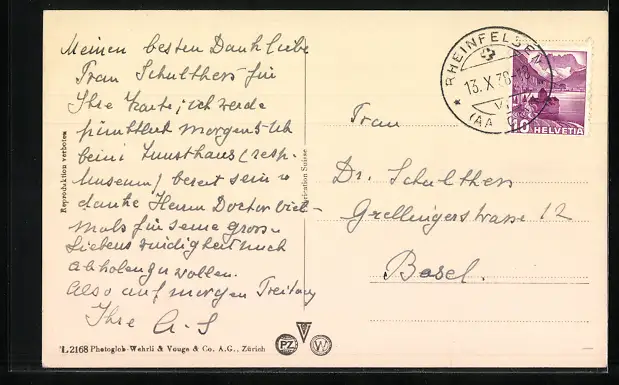 Meinen besten Dank liebe
Frau Schulthess für
Ihre Karte; ich werde
pünktlich morgens Uh
beim Kunsthaus (resp.
Museum) bereit sein u
danke Herrn Doctor viel-
mals für seine gross
Liebenswürdigkeit mich
abholen zu wollen.
Also auf morgen Freitag
Ihre A. S
Reproduktion verboten
Suisse
RHEINFELDEN
13. X. 38
(AA
10 HELVETIA
Frau
Dr. Schulthess
Grellingerstrasse 12
Basel.
L2168 Photoglob-Wehrli & Vouga & Co. A.G., Zürich
PZ W